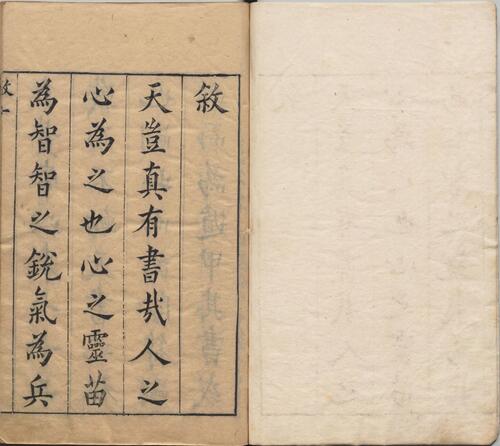 敘
天豈真有書哉人之
心為之也心之靈苗
為智智之銳氣為兵
敘一